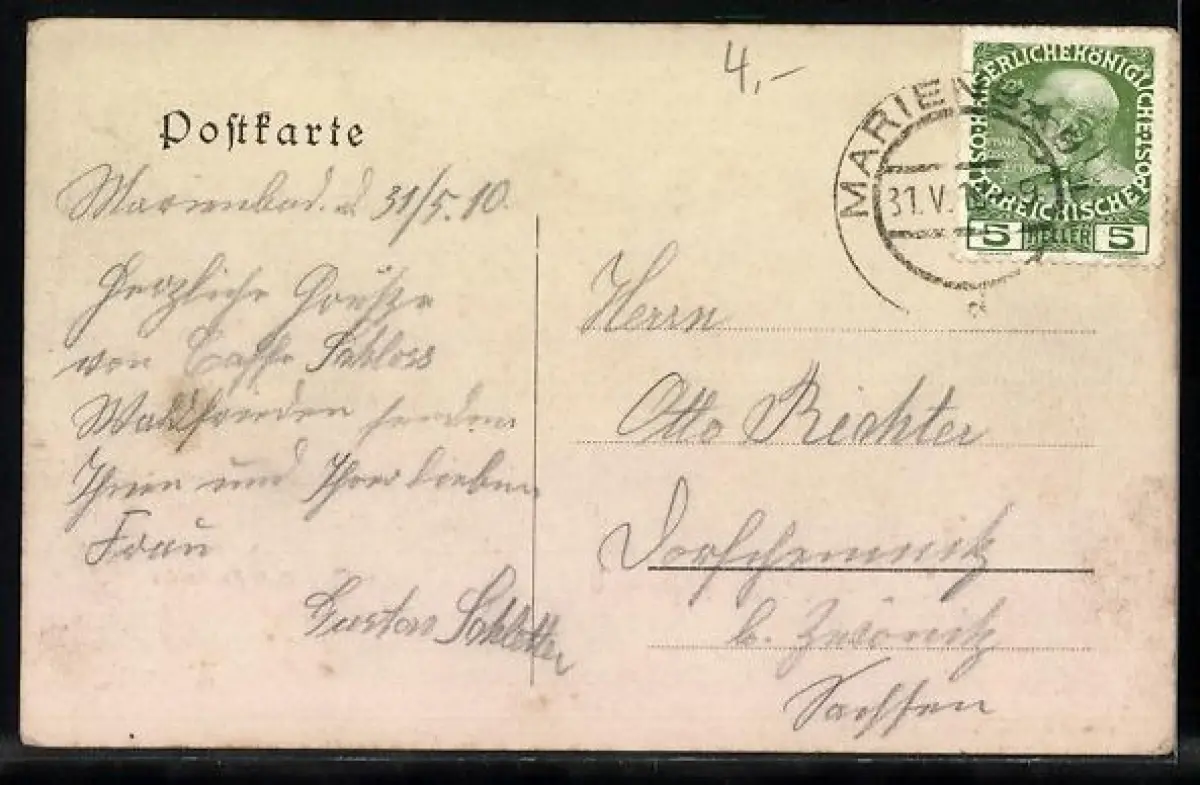 4,-
Postkarte
Marienbad. d 31/5.10.
Herzliche Grüße
von Caffe Schloss
Waldfrieden senden
Ihnen und Ihrer lieben
Frau
Gustav Schlotter
MARIENBAD
31.V.
KAISERLICHEKÖNIGLICHE
ÖSTERREICHISCHE POST
5 HELLER 5
Herrn
Otto Richter
Dorfchemnitz
b. Zwönitz
Sachsen